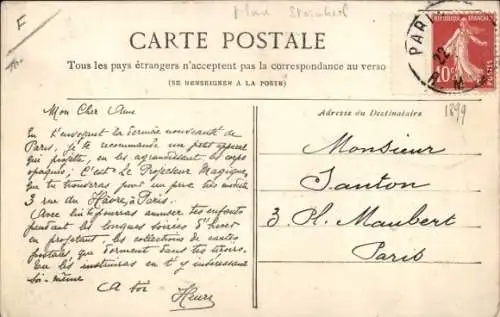 Place Steinkerl
F
CARTE POSTALE
Tous les pays étrangers n'acceptent pas la correspondance au verso
(SE RENSEIGNER A LA POSTE)
REPUBLIQUE FRANÇAISE
10
POSTES
PARIS
22
1899
Mon Cher Ami
En t'envoyant la dernière nouveauté de
Paris, je te recommande un petit appareil
qui projette, en les agrandissant les corps
opaques; C'est Le Projecteur Magique,
que tu trouveras pour un prix très modéré
3 rue du Havre à Paris.
Avec lui tu pourras amuser tes enfants
pendant les longues soirées d'hiver
en projetant les collections de cartes
postales, qui dorment dans tes tiroirs.
Tu les instruiras en t'y intéressant
toi-même
A toi
Henri
Adresse du Destinataire
Monsieur
Janton
3. Pl. Maubert
Paris